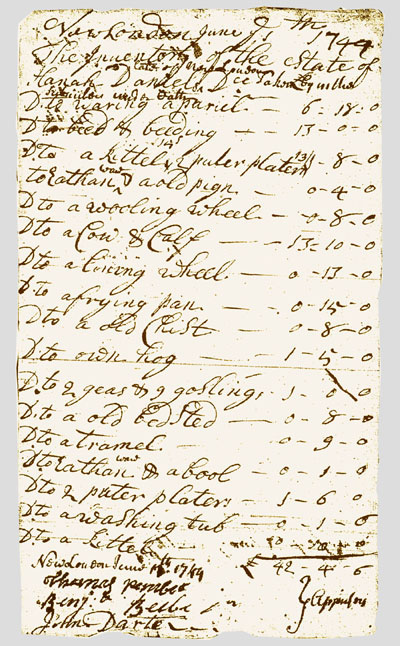 New London June 7th 1744
The Inventory of the Estate of
Hanah Daniels Dec Taken by us the
Subscribers under oath
Dto waring Apariel — 6 - 18 - 0
Dto beed & beeding — 13 - 0 - 0
Dto a kittel & puter platers 8 - 0
to Eathan waw & a old pign — 0 - 4 - 0
Dto a wooling wheel — 0 - 8 - 0
Dto a Cow & Calf — 13 - 10 - 0
Dto a lining wheel — 0 - 13 - 0
Dto a frying pan — 0 - 15 - 0
Dto a old Chist — 0 - 8 - 0
Dto own hog — 1 - 5 - 0
Dto 2 geas & 9 goslings - 1 - 0 0
Dto a old bedsted — 0 - 8 - 0
Dto a tramel — 0 - 9 - 0
Dto Eathan waw & a bool — 0 - 1 - 0
Dto 2 puter platers — 1 - 6 0
Dto a washing tub — 0 - 1 - 6
Dto a kittel
New London June 1744 £ 42 - 4 - 6
Thomas
Benj
John Darte